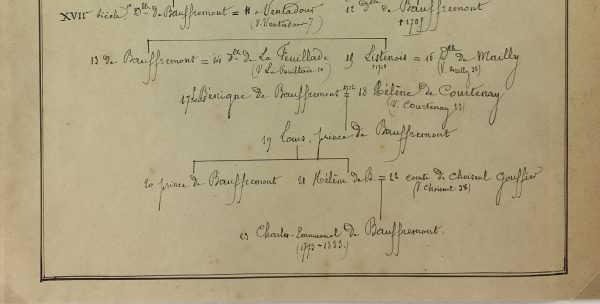 XVIIe siècle. Dlle de Bauffremont = 11 Ventadour 12 Dlle de Bauffremont
(V. Ventadour 7)
13 de Bauffremont = 14 Dlle de La Feuillade 15 Listenois = 16 Dlle de Mailly
(V. La Feuillade 10) (V. Mailly 38)
17 Bénigne de Bauffremont = 18 Hélène de Courtenay
(V. Courtenay 33)
19 Louis, prince de Bauffremont
20 prince de Bauffremont 21 Hélène de B. = 22 comte de Choiseul Gouffier
(V. Choiseul 38)
23 Charles-Emmanuel de Bauffremont.
(1773-1833.)